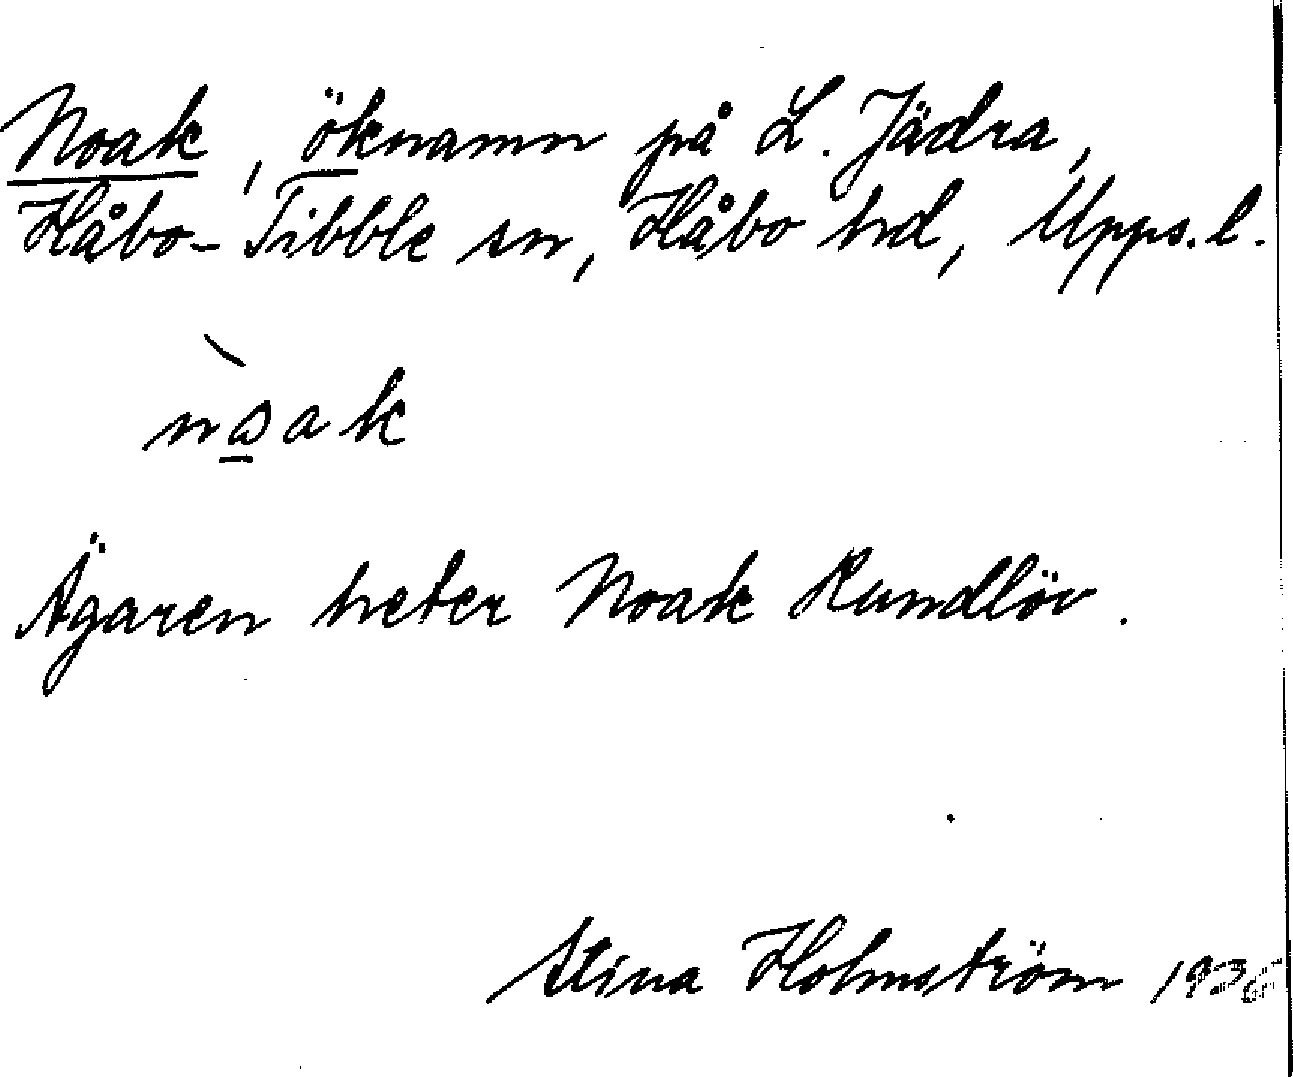 Noak, öknamn på L. Jädra,
Håbo-Tibble sn, Håbo hd, Upps. l.
Ägaren heter Noak Rundlöv.
Stina Holmström